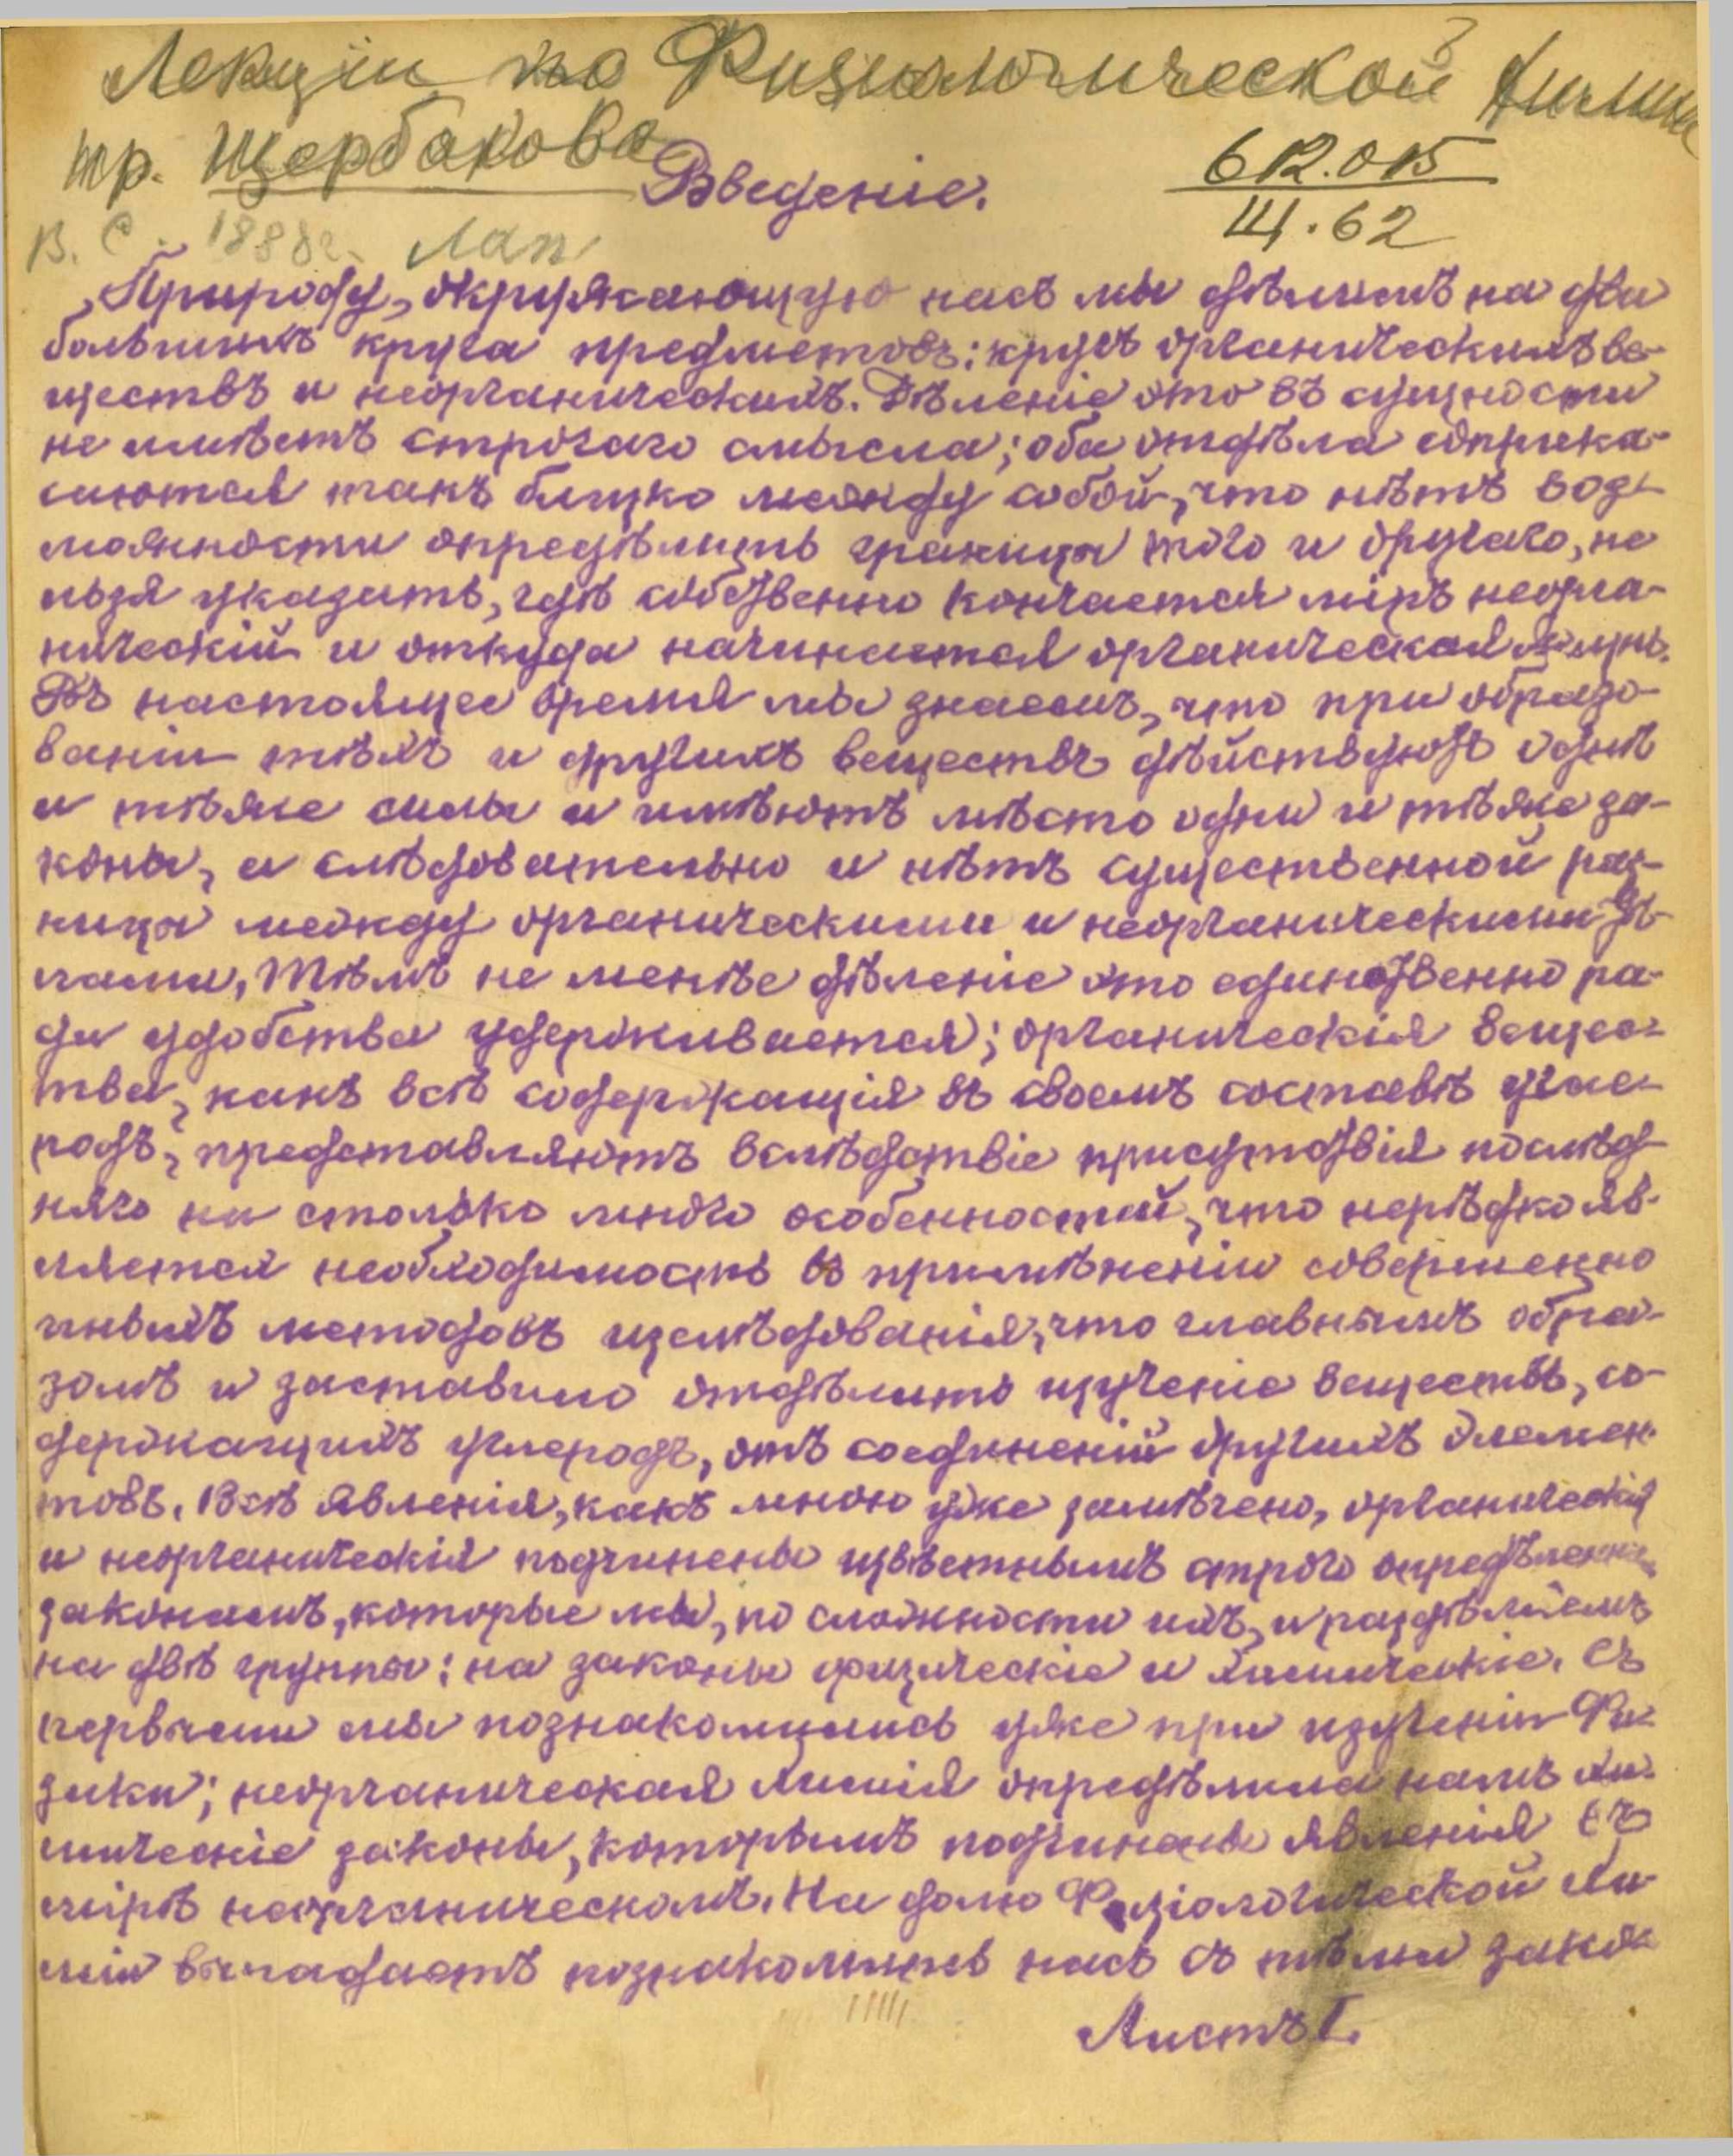 Лекціи по Физиологической химіи
пр. Щербакова
612.015
Щ.62
Введеніе.
В. С. 1888г.
Природу, окружающую насъ мы дѣлимъ на два
большихъ круга предметовъ: кругъ органическихъ ве-
ществъ и неорганическихъ. Дѣленіе это въ сущности
не имѣетъ строгаго смысла; оба отдѣла соприка-
саются такъ близко между собой, что нѣтъ воз-
можности опредѣлить границы того и другаго, не-
льзя указать, гдѣ собственно кончается міръ неорга-
ническій и откуда начинается органическая жизнь.
Въ настоящее время мы знаемъ, что при образо-
ваніи тѣхъ и другихъ веществъ дѣйствуютъ однѣ
и тѣже силы и имѣютъ мѣсто одни и тѣже за-
коны, а слѣдовательно и нѣтъ существенной раз-
ницы между органическими и неорганическими тѣ-
лами, Тѣмъ не менѣе дѣленіе это единственно ра-
ди удобства удерживается; органическія вещес-
тва, какъ всѣ содержащія въ своемъ составѣ угле-
родъ, представляютъ вслѣдствіе присутствія послѣд-
няго на столько много особенностей, что нерѣдко яв-
ляется необходимость въ примѣненіи совершенно
иныхъ методовъ изслѣдованія, что главнымъ обра-
зомъ и заставило отдѣлить изученіе веществъ, со-
держащихъ углеродъ, отъ соединеній другихъ элемен-
товъ. Всѣ явленія, какъ мною уже замѣчено, органическія
и неорганическія подчинены извѣстнымъ строго опредѣленнымъ
законамъ, которые мы, по сложности ихъ, и раздѣляемъ
на двѣ группы: на законы физическіе и химическіе. Съ
первыми мы познакомились уже при изученіи Фи-
зики; неорганическая химія опредѣлила намъ хи-
мическіе законы, которымъ подчинены явленія въ
мірѣ неорганическомъ. На долю Физіологической хи-
міи выпадаетъ познакомить насъ съ тѣми зако-
Листъ 1.